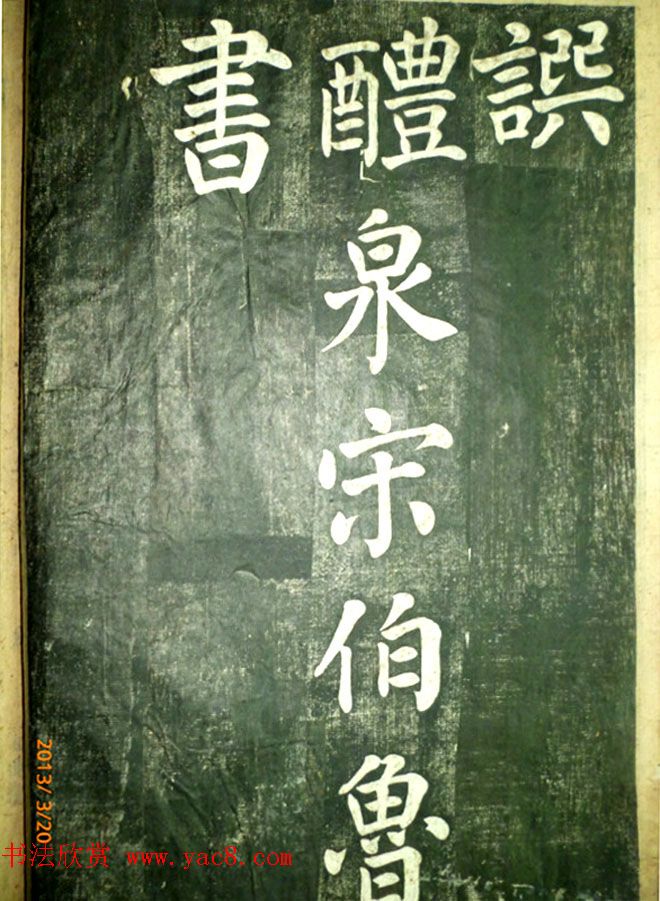 譔
醴泉宋伯魯
書
2013/3/20
书法欣赏 www.yac8.com